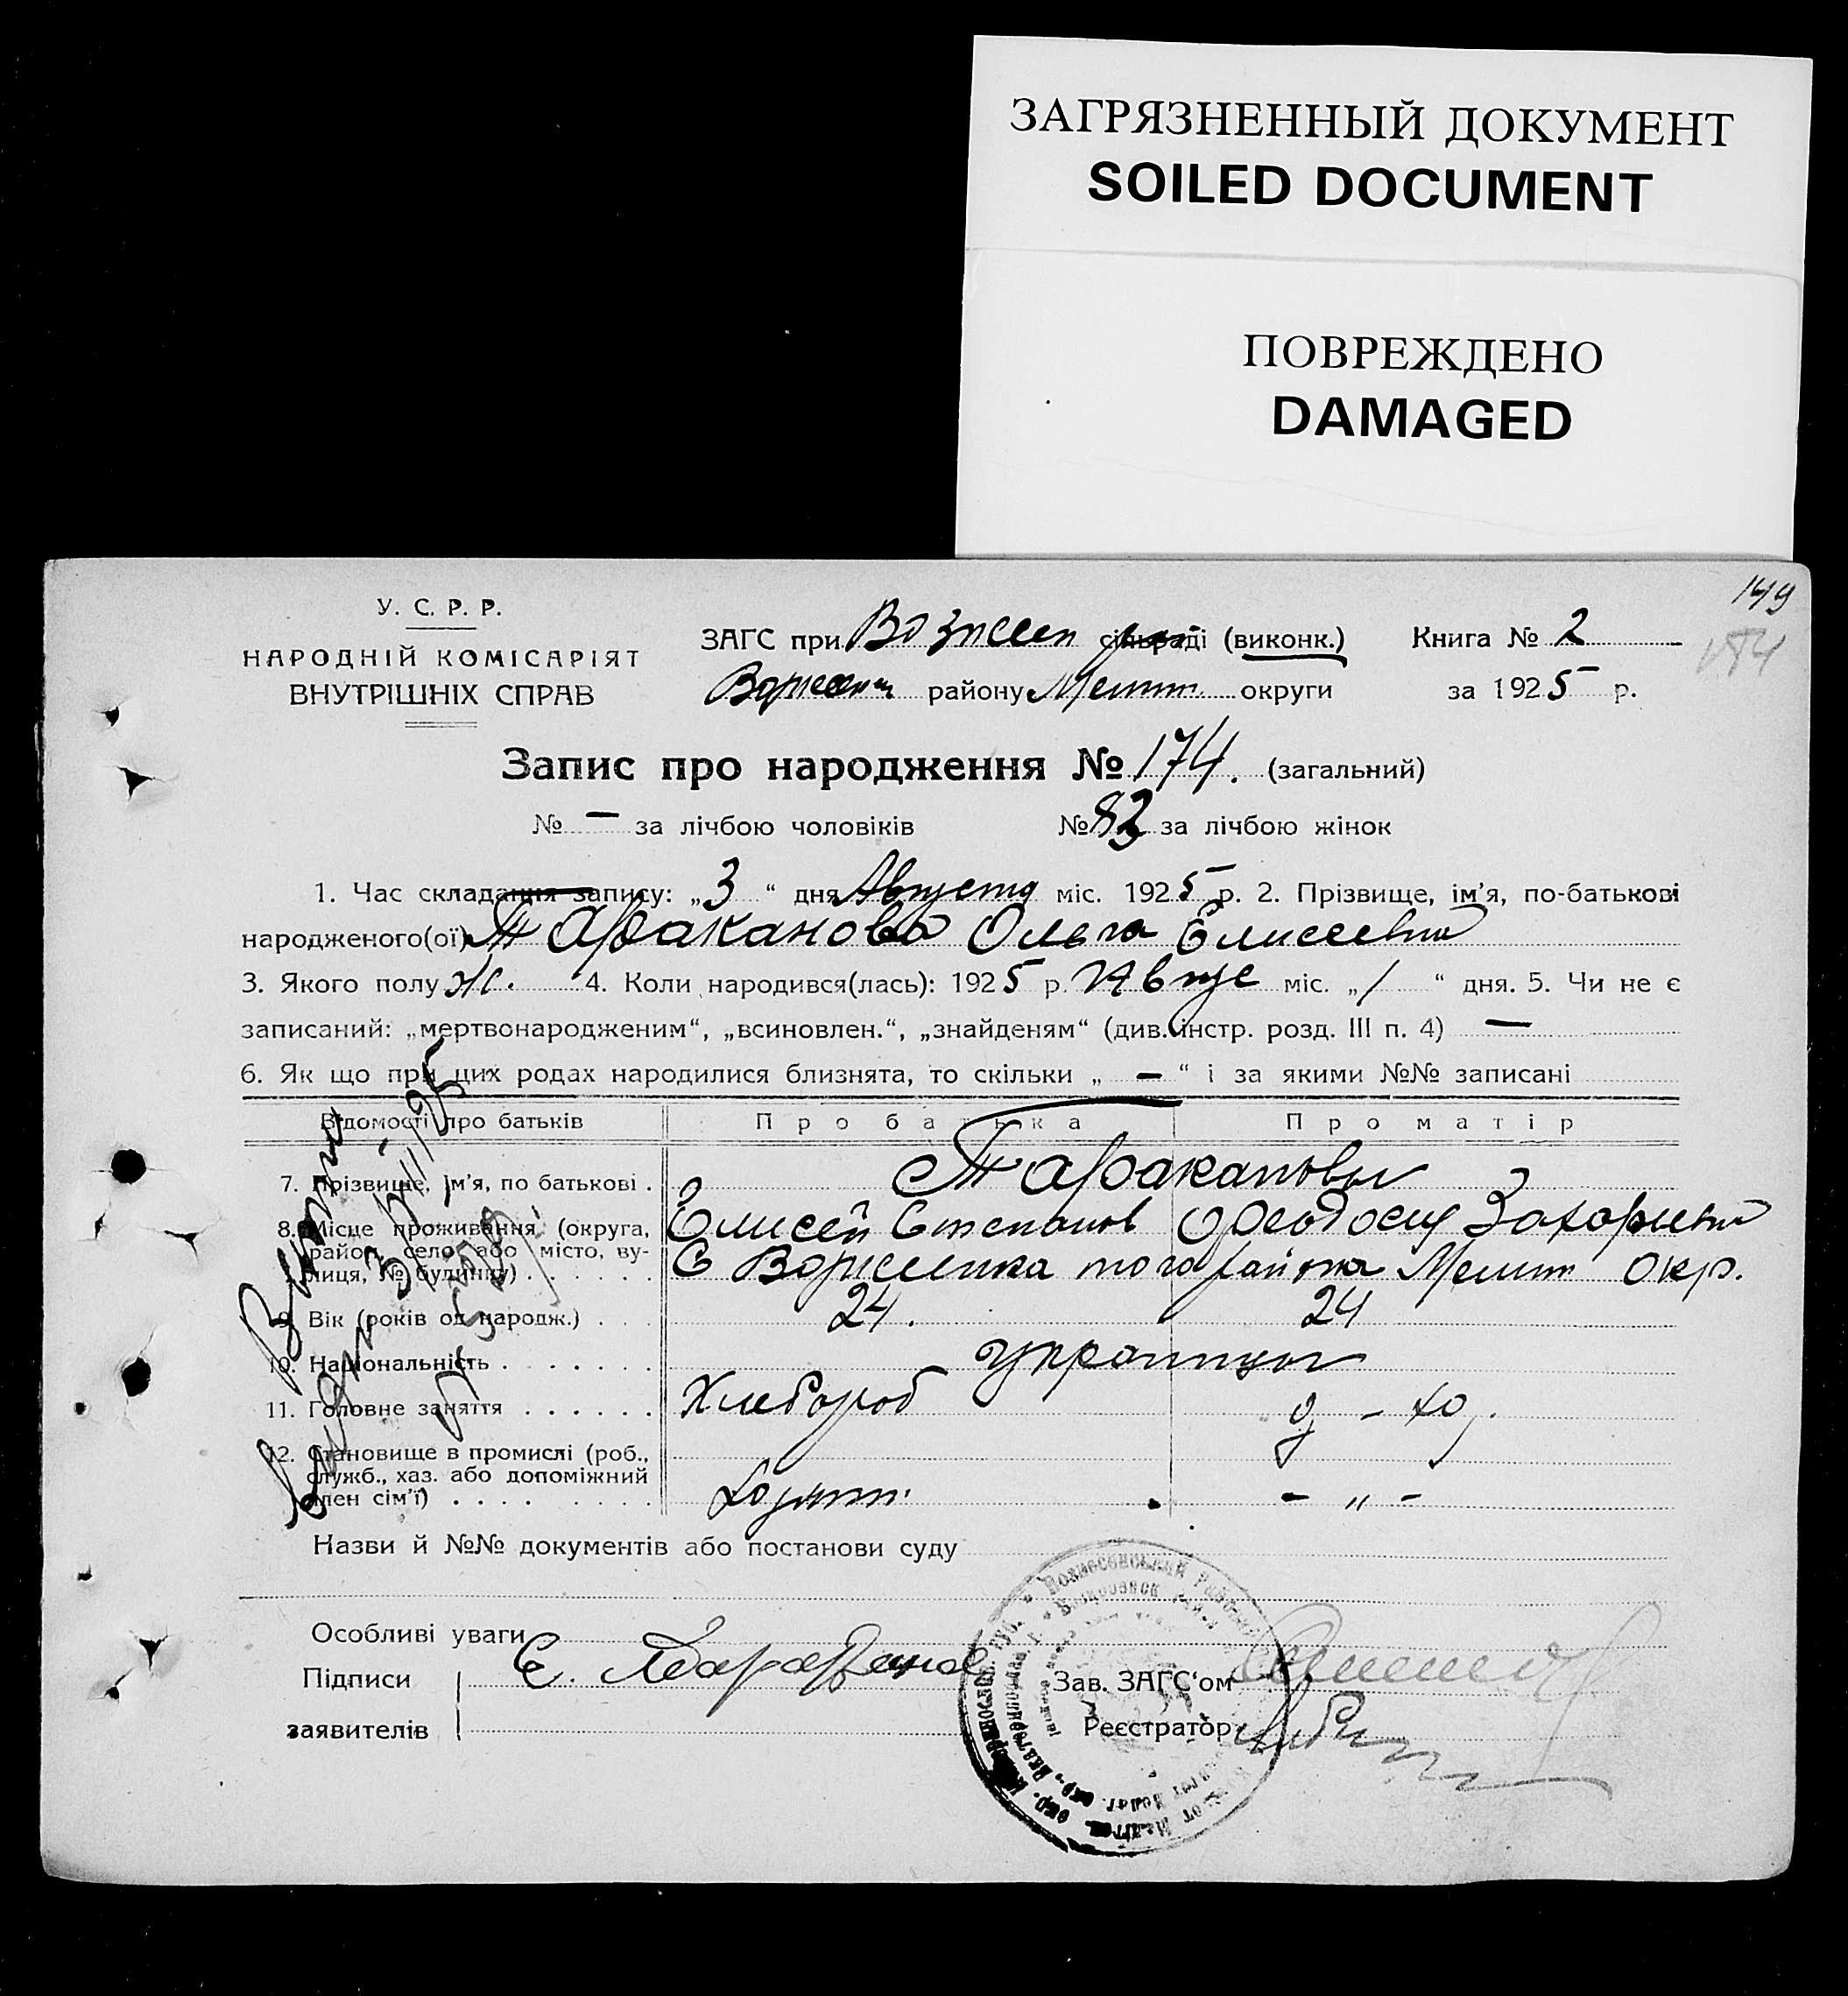 ЗАГРЯЗНЕННЫЙ ДОКУМЕНТ
SOILED DOCUMENT
ПОВРЕЖДЕНО
DAMAGED
149
184
У. С. Р. Р.
НАРОДНІЙ КОМІСАРІЯТ
ВНУТРІШНІХ СПРАВ
ЗАГС при Вознесен сільраді (виконк.) Книга № 2
району Мелит округи за 1925 р.
Запис про народження № 174. (загальний)
№ — за лічбою чоловіків № 83 за лічбою жінок
1. Час складання запису: „3“ дня Августа міс. 1925 р. 2. Прізвище, ім’я, по-батькові
народженого(ої) Тараканова Ольга Елисеевна
3. Якого полу ж. 4. Коли народився(лась): 1925 р. Авгус міс. „1“ дня. 5. Чи не є
записаний: „мертвонародженим“, „всиновлен.“, „знайденям“ (див. інстр. розд. III п. 4) —
6. Як що при цих родах народилися близнята, то скільки „ — “ і за якими №№ записані
Відомості про батьків Про батька Про матір
7. Прізвище, ім’я, по батькові . Таракановы
8. Місце проживання (округа, Елисей Степанов Феодосия Захарьевна
район, село або місто, ву-
лиця, № будинку) . . . . . . С Вознесенка того района Мелит окр.
9. Вік (років од народж.) . . . 24. 24
10. Національність . . . . . . . украинцы
11. Головне заняття . . . . . . Хлебороб д - хоз.
12. Становище в промислі (роб.,
служб., хаз. або допоміжний
член сім’ї) . . . . . . . . . - „ -
Назви й №№ документів або постанови суду
Особливі уваги
Підписи Є. Тараканов Зав. ЗАГС‘ом
заявителів Реєстратор